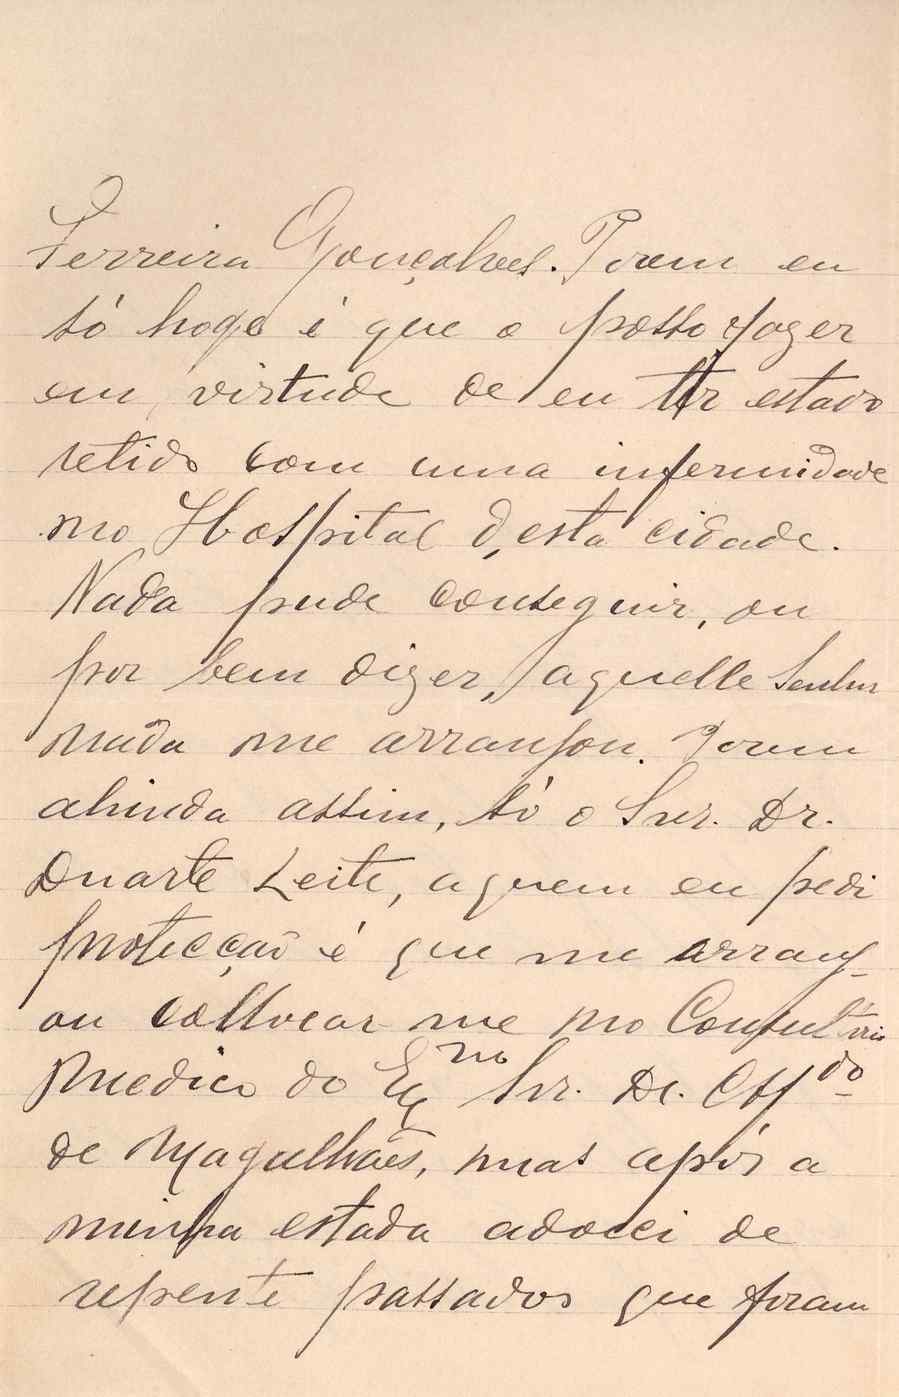 Ferreira Gonçalves. Porem eu
só hoge é que o posso fazer
em virtude de eu ter estado
retido com uma infermidade
no Hospital d,esta cidade.
Nada pude conseguir, ou
por bem dizer, aquelle Senhor
nada me arranjou. Porem
ahinda assim, só o Snr. Dr.
Duarte Leite, a quem eu pedi
protecção é que me arranj-
ou collocar me no Consultorio
Medico do Exmo Snr. Dr.
de Magalhães, mas após a
minha estada adoeci de
repente passados que foram